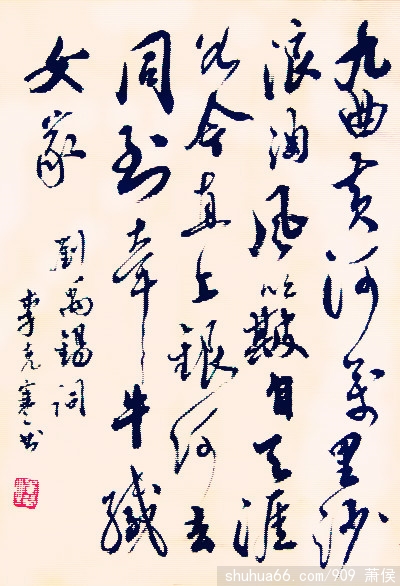 九曲黄河萬里沙
浪淘風簸自天涯
如今直上銀河去
同到牽牛織
女家
劉禹錫詞
李克寒书
shuhua66.com/909 萧侯